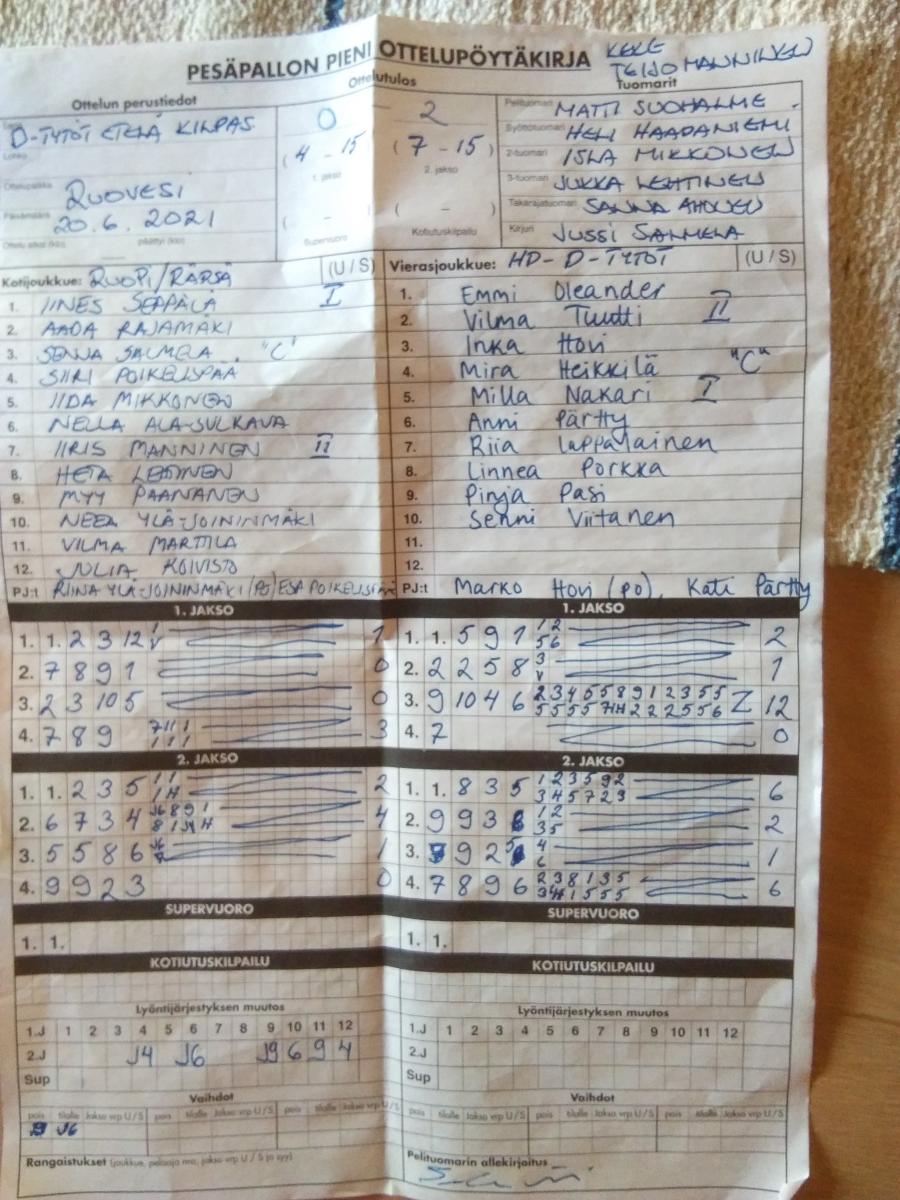 PESÄPALLON PIENI OTTELUPÖYTÄKIRJA
TEIJO MANNINEN
Ottelun perustiedot
Ottelutulos
Tuomarit
D-TYTÖT ETELÄ KILPAS
0 – 2
(4 – 15) (7 – 15)
1. jakso 2. jakso
( – ) ( – )
Supervuoro Kotiutuskilpailu
Lohko
Ottelupaikka RUOVESI
Päivämäärä 20.6.2021
Ottelu alkoi (klo) päättyi (klo)
Pelituomari MATTI SUOHALME
Syöttötuomari HELI HAAPANIEMI
2-tuomari ISLA MIKKONEN
3-tuomari JUKKA LEHTINEN
Takarajatuomari SANNA AHONEN
Kirjuri JUSSI SALMELA
Kotijoukkue: RUOPI/RÄRSÄ (U / S)
1. IINES SEPPÄLÄ I
2. AADA RAJAMÄKI
3. SENJA SALMELA "C"
4. SIIRI POIKELISPÄÄ
5. IIDA MIKKONEN
6. NELLA ALA-SULKAVA
7. IIRIS MANNINEN II
8. HETA LEHTINEN
9. MYY PAANANEN
10. NEEA YLÄ-JOININMÄKI
11. VILMA MARTTILA
12. JULIA KOIVISTO
PJ:t RIINA YLÄ-JOININMÄKI (PO) ESA POIKELISPÄÄ
Vierasjoukkue: HD- D-TYTÖT (U / S)
1. Emmi Oleander
2. Vilma Tuutti II
3. Inka Hovi
4. Mira Heikkilä "C"
5. Milla Nakari I
6. Anni Pärtty
7. Riia Lappalainen
8. Linnea Porkka
9. Pinja Pasi
10. Senni Viitanen
11.
12.
PJ:t Marko Hovi (PO), Kati Pärtty
1. JAKSO
1. 1. 2 3 12 1
2. 7 8 9 1 0
3. 2 3 10 5 0
4. 7 8 9 3
2. JAKSO
1. 1. 2 3 5 2
2. 6 7 3 4 4
3. 5 5 8 6 1
4. 9 9 2 3 0
SUPERVUORO
1. 1.
KOTIUTUSKILPAILU
Lyöntijärjestyksen muutos
1.J 1 2 3 4 5 6 7 8 9 10 11 12
2.J J4 J6 J9 6 9 4
Sup
Vaihdot
pois tilalle Jakso vrp U / S pois tilalle Jakso vrp U / S pois tilalle Jakso vrp U / S
J6
Rangaistukset (joukkue, pelaaja nro, jakso vrp U / S ja syy)
1. JAKSO
1. 1. 5 9 1 1 2 2
5 6
2. 2 2 5 8 3 1
V
3. 9 10 4 6 2 3 4 5 5 8 9 1 2 3 5 5 12
4. 7 0
2. JAKSO
1. 1. 8 3 5 1 2 3 5 9 2 6
3 4 5 7 2 3
2. 9 9 3 1 2 2
3 5
3. 9 2 4 1
6
4. 7 8 9 6 2 3 8 1 3 5 6
SUPERVUORO
1. 1.
KOTIUTUSKILPAILU
Lyöntijärjestyksen muutos
1.J 1 2 3 4 5 6 7 8 9 10 11 12
2.J
Sup
Vaihdot
pois tilalle Jakso vrp U / S pois tilalle Jakso vrp U / S pois tilalle Jakso vrp U / S
Pelituomarin allekirjoitus